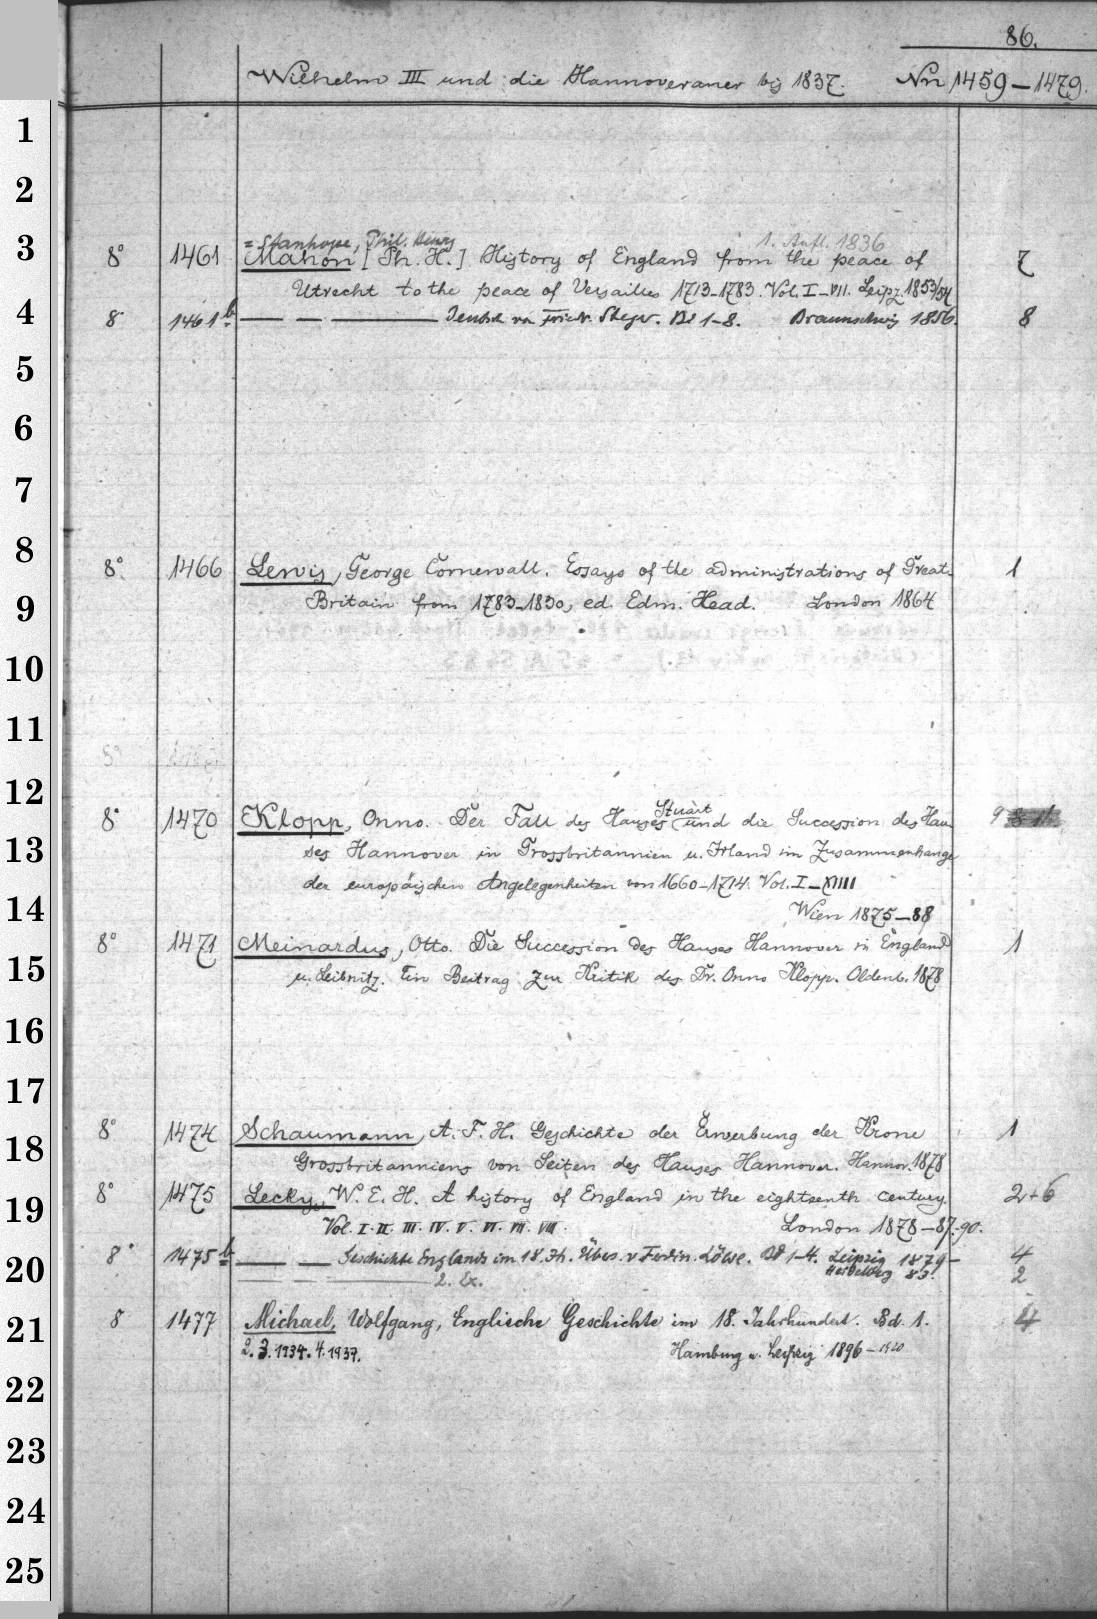 86.
Wilhelm III und die Hannoveraner bis 1837. Nn 1459–1479.
1
2
= Stanhope, Phil. Henry 1. Aufl. 1836
3 8° 1461 Mahon [Ph. H.] History of England from the peace of 7
Utrecht to the peace of Versailles 1713–1783. Vol. I–VII. Leipz. 1853/54
4 8° 1461b — — — Deutsch von Friedr. Steger. Bd 1–8. Braunschwig 1856. 8
5
6
7
8 8° 1466 Lewis, George Cornewall. Essays of the administrations of Great- 1
9 Britain from 1783–1830, ed. Edm. Head. London 1864
10
11 8°
12 Stuart
8° 1470 Klopp, Onno. Der Fall des Hauses und die Succession des Hau- 9
13 ses Hannover in Grossbritannien u. Irland im Zusammenhange
der europäischen Angelegenheiten von 1660–1714. Vol. I–XIIII
14 Wien 1875–88
8° 1471 Meinardus, Otto. Die Succession des Hauses Hannover in England 1
15 u. Leibnitz. Ein Beitrag zur Kritik des Dr. Onno Klopp. Oldenb. 1878
16
17
18 8° 1474 Schaumann, A. F. H. Geschichte der Erwerbung der Krone 1
Grossbritanniens von Seiten des Hauses Hannover. Hannov. 1878
19 8° 1475 Lecky, W. E. H. A history of England in the eighteenth century. 2+6
Vol. I. II. III. IV. V. VI. VII. VIII. London 1878–87.-90.
20 8° 1475b — — Geschichte Englands im 18. Jh. Übers. v Ferdin. Löwe. Bd 1–4. Leipzig 1879– 4
Heidelberg 83.
— — — 2. Ex. 2
21 8 1477 Michael, Wolfgang, Englische Geschichte im 18. Jahrhundert. Bd. 1. 4
2. 3. 1934. 4. 1937. Hamburg u. Leipzig 1896–1920
22
23
24
25